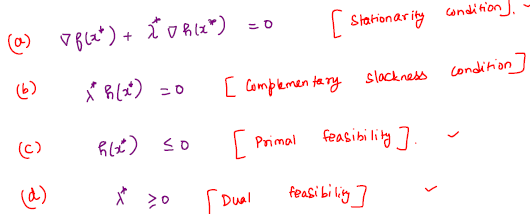 (a) ∇f(x*) + λ* ∇h(x*) = 0 [Stationarity condition]. ✓
(b) λ* h(x*) = 0 [Complementary slackness condition]
(c) h(x*) ≤ 0 [Primal feasibility]. ✓
(d) λ* ≥ 0 [Dual feasibility] ✓